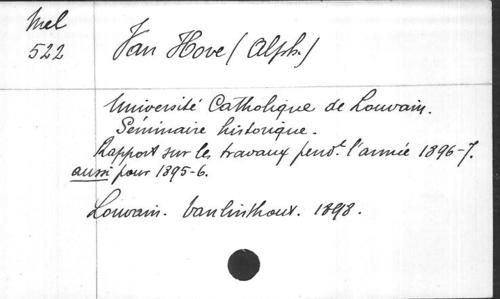 Mel
522
Van Hove (Alph.)
Université Catholique de Louvain.
Séminaire historique.
Rapport sur les travaux pendt l'année 1896-7.
aussi pour 1895-6.
Louvain. Vanlinthout. 1898.